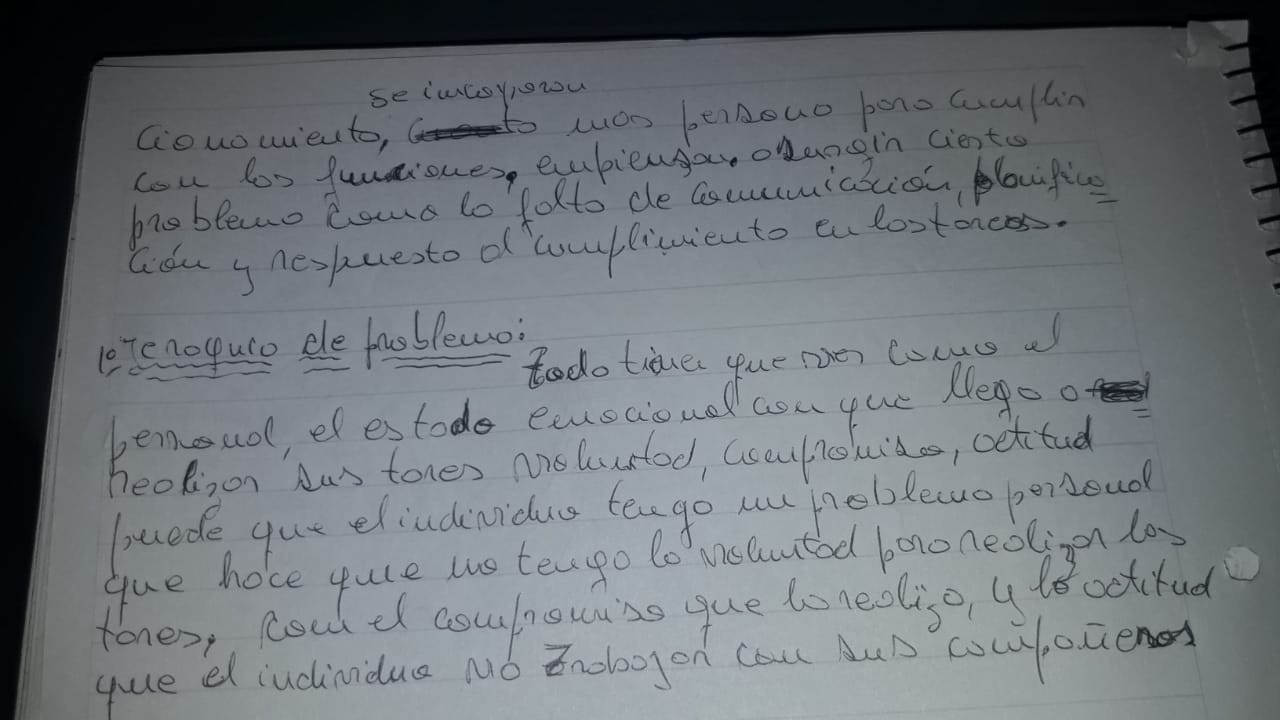 se incoyporan
cionamiento, mas persona para cumplin
con las funciones, empiensan. a surgin cierta
problema como la falta de comunicación, planifica
ción y respuesto al cumplimiento en las tareas.
1º Jeraquia de problema:
todo tiene que ver como el
personal, el estado emocional con que llega a
realizar sus tares voluntad, compromiso, actitud
puede que el individuo tenga un problema personal
que hace que no tenga la voluntad para realizar las
tares, con el compromiso que lo realiza, y la actitud
que el individuo no trabajar con sus compañeros